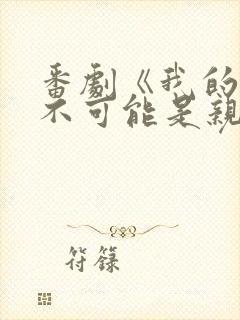 番劇《我的
不可能是親
符籙